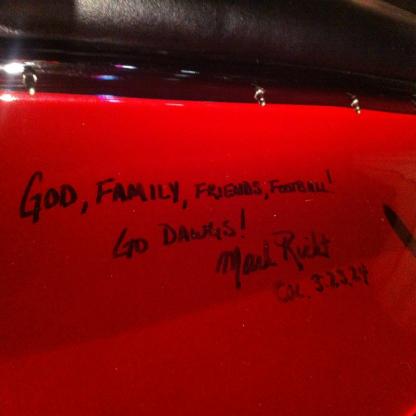 GOD, FAMILY, FRIENDS, FOOTBALL!
GO DAWGS!
Mark Richt
Col. 3.23,24